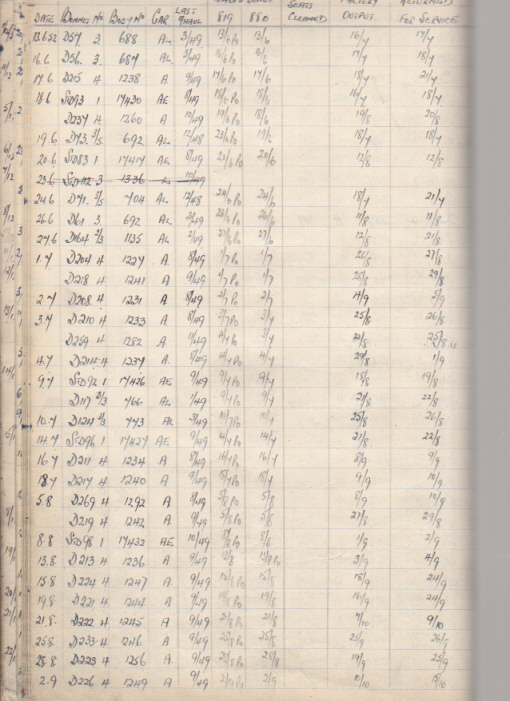 DATE BONNET No BODY No CAR LAST OHAUL 819 880 SEATS CLEANED FACTORY OUTPUT RETURNED FOR SERVICE
13.6.52 D57 3 688 AL 3/49 13/6 Po 13/6 16/7 17/7
16.6 D56 3 687 AL 3/49 16/6 Po 16/6 17/7 18/7
17.6 D215 4 1238 A 9/49 17/6 Po 17/6 18/7 21/7
18.6 STD93 1 17430 AE 8/49 18/6 Po 18/6 16/7 18/7
D237 4 1260 A 10/49 19/6 Po 18/6 19/8 20/8
19.6 D72 3/5 692 AL 12/48 23/6 Po 19/6 18/7 18/7
20.6 STD83 1 17417 AE 8/49 23/6 Po 20/6 12/8 12/8
23.6 STD112 3 1336 L 10/49
24.6 D71 3/5 704 AL 12/48 24/6 Po 24/6 18/7 21/7
26.6 D61 3 692 AL 3/49 26/6 Po 26/6 11/8 11/8
27.6 D164 2/3 1135 AL 27/6 Po 27/6 12/8 21/8
1.7 D204 4 1227 A 8/49 1/7 Po 1/7 26/8 27/8
D218 4 1241 A 9/49 1/7 Po 1/7 28/8 29/8
2.7 D208 4 1231 A 8/49 2/7 Po 2/7 4/9 5/9
3.7 D210 4 1233 A 8/49 3/7 Po 3/7 25/8 26/8
D259 4 1282 A 1/49 4/7 Po 3/7 22/8 25/8
4.7 D214 4 1237 A 9/49 4/7 Po 4/7 29/8 1/9
9.7 STD92 1 17426 AE 9/49 9/7 Po 9/7 18/8 19/8
D117 2/3 766 AL 9/49 9/7 Po 9/7 21/8 22/8
10.7 D124 2/3 773 AL 3/49 10/7 Po 10/7 25/8 26/8
14.7 STD96 1 17427 AE 9/49 14/7 Po 14/7 21/8 22/8
16.7 D211 4 1234 A 8/49 14/7 Po 16/7 8/9 9/9
18.7 D217 4 1240 A 9/49 18/7 Po 18/7 9/9 10/9
5.8 D269 4 1292 A 8/49 5/8 Po 5/8 8/9 10/9
D219 4 1242 A 9/49 5/8 Po 5/8 27/8 29/8
8.8 STD98 1 17432 AE 10/49 8/8 Po 8/8 1/9 2/9
13.8 D213 4 1236 A 9/49 13/8 13/8 Po 3/9 4/9
15.8 D224 4 1247 A 9/49 15/8 Po 15/8 18/9 24/9
19.8 D221 4 1244 A 9/49 19/8 Po 19/8 16/9 24/9
21.8 D222 4 1245 A 9/49 21/8 Po 21/8 7/10 9/10
25.8 D223 4 1246 A 9/49 25/8 Po 25/8 25/9 26/9
28.8 D233 4 1256 A 9/49 28/8 Po 28/8 19/9 25/9
2.9 D226 4 1249 A 9/49 2/9 Po 2/9 10/10 15/10